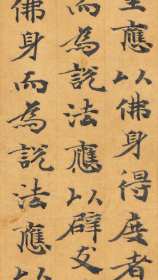 生應以佛身得度者
而為說法應以辟支
佛身而為說法應以